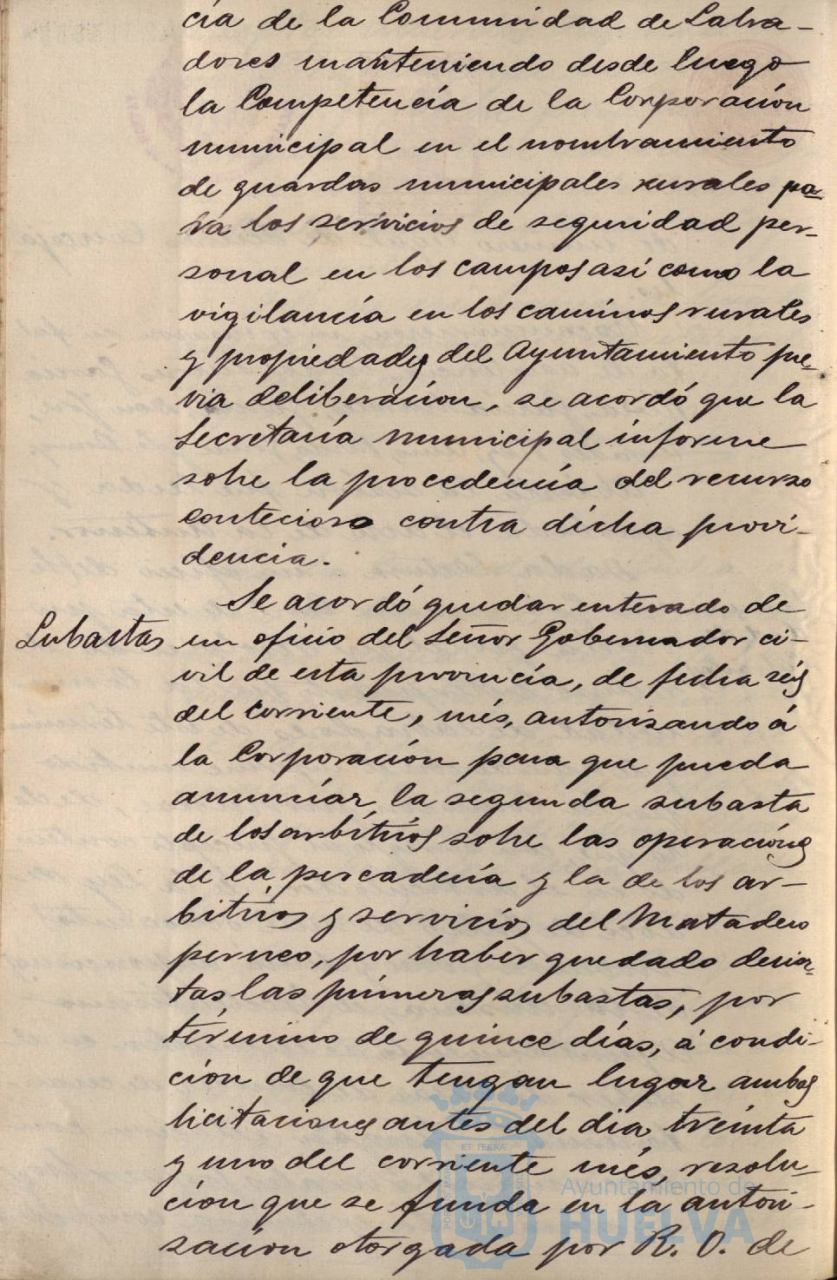 cía de la Comunidad de Labra-
dores manteniendo desde luego
la Competencía de la Corporación
municipal en el nombramiento
de guardas municipales rurales pa-
ra los servicios de seguridad per-
sonal en los campos así como la
vigilancía en los caminos rurales
y propiedades del Ayuntamiento pre-
via deliberacíon, se acordó que la
Secretaría municipal informe
sobre la procedencía del recurso
contecioso contra dicha provi-
dencia.
Se acordó quedar enterado de
Subastas
un oficio del Señor Gobernador ci-
vil de esta provincía, de fecha seis
del corriente, més, autorizando á
la Corporación para que pueda
anuncíar la segunda subasta
de los arbítrios sobre las operaciónes
de la pescadería y la de los ar-
bitrios y servicios del Matadero
perneo, por haber quedado desier-
tas las primeras subastas, por
término de quince días, á condi-
ción de que tengan lugar ambas
licitaciones antes del dia treinta
y uno del corriente més, resolu-
cíon que se funda en la autori-
zacíon otorgada por R. O. de
Ayuntamiento de
HUELVA